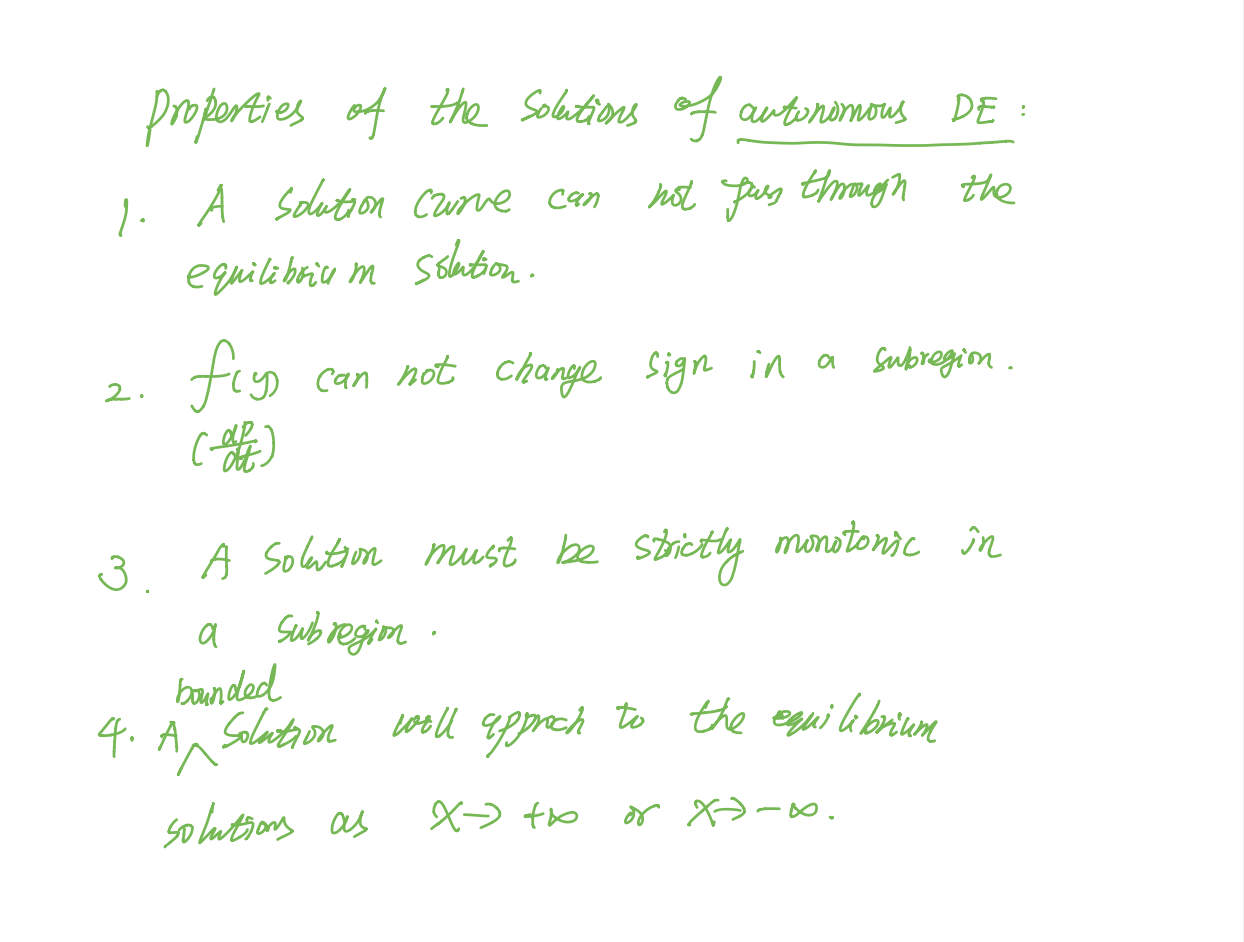 Properties of the solutions of autonomous DE :
1. A solution curve can not pass through the
equilibrium solution.
2. f(y) can not change sign in a subregion.
(dP/dt)
3. A solution must be strictly monotonic in
a subregion.
bounded
4. A ^ solution will approch to the equilibrium
solutions as x→+∞ or x→-∞.